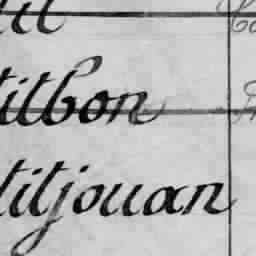 tit
titbon
titjouan